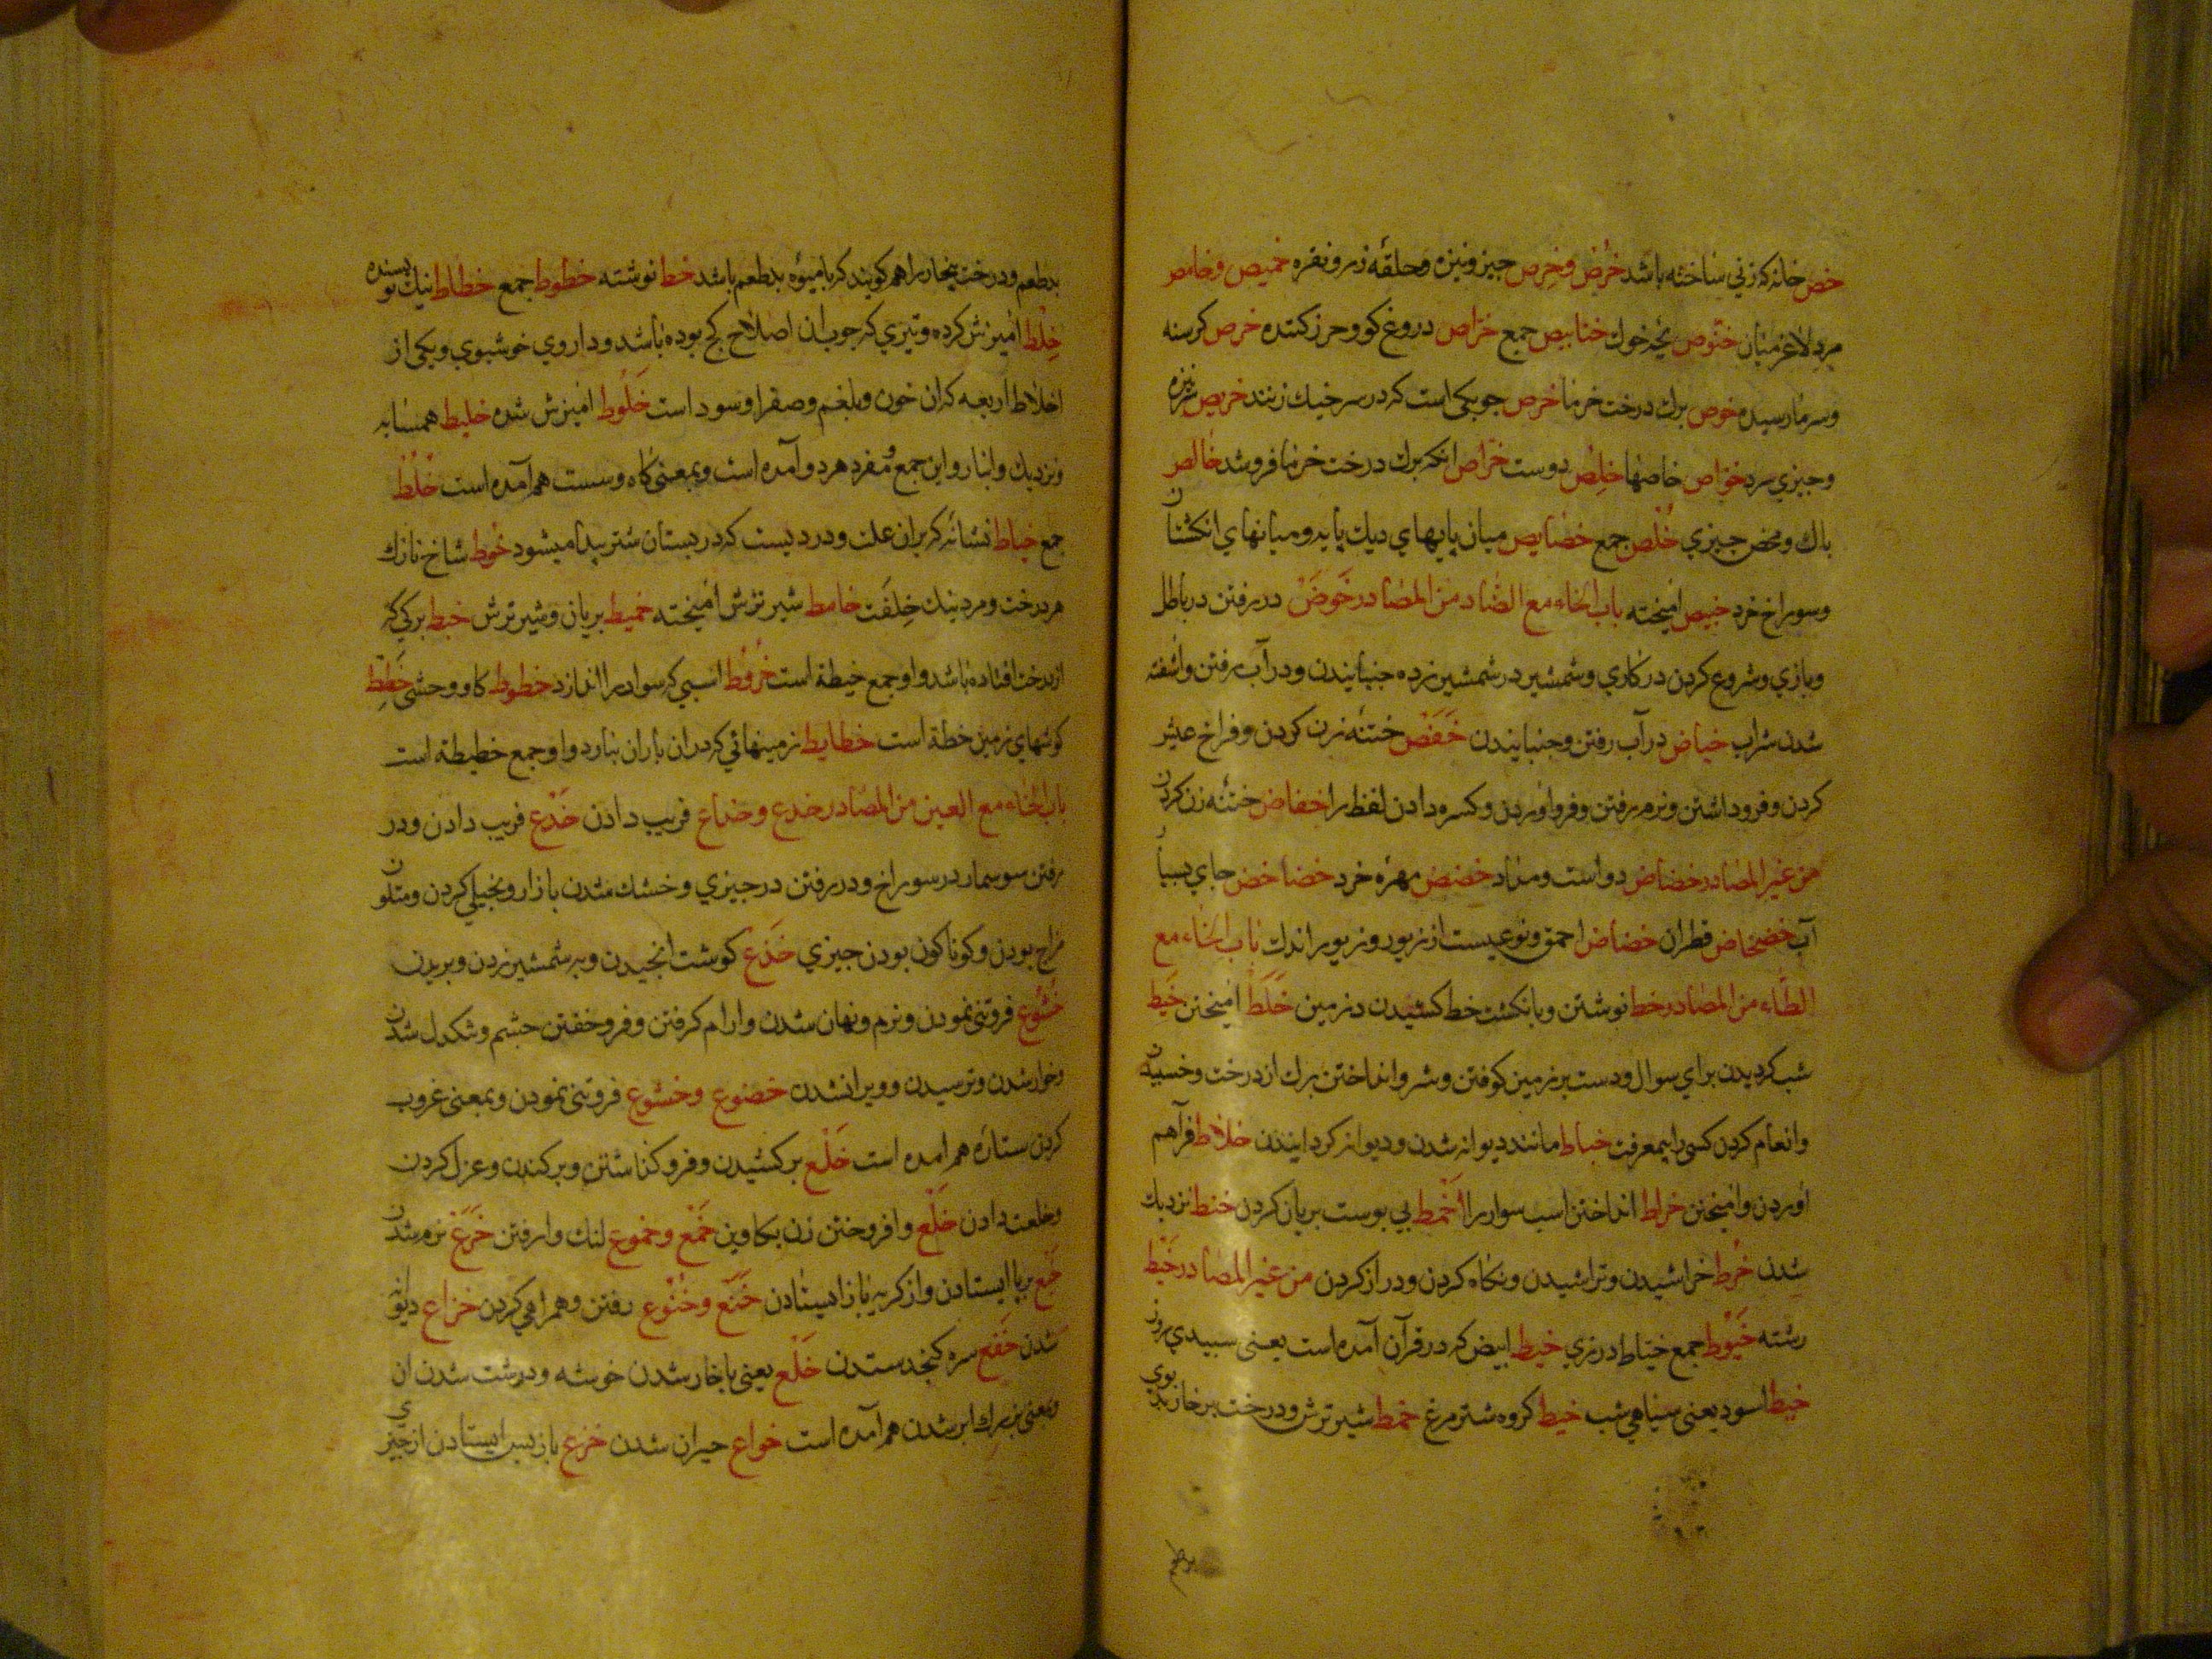 خص خانه که زني ساخته باشد خرص وخرص چيز ونيزه وحلقه زر ونقره خميص وخامص
مرد لاغر ميان خنوص بچه خوك خنابيص جمع خراص دروغ کو وحرز کننده خرص کرسنه
وسرما رسيده خوص برك درخت خرما خرص جوبکي است که در سر خيك زنند خريص نيزه
وچيزي سرد خواص خاصها خلص دوست خراص انکه برك درخت خرما فروشد خالص
باك ومحض چيزي خلص جمع خصايص ميان پايهاي ديك پايه وميانهاي انکشتان
وسوراخ خرد خبيص اميخته باب الخاء مع الضاد من المصادر خوض در رفتن در باطل
وبازي وشروع کردن در کاري وشمشير در شمشير زده جنبانيدن ودر آب رفتن واشفته
شدن شراب خياض در آب رفتن وجنبانيدن خفض ختنه زن کردن وفراخ عيش
کردن وفرو داشتن ونرم رفتن وفرو اوردن وکسره دادن لفظ را خفاض ختنه زن کردن
من غير المصادر خضاض دواست ومداد خضض مهره خرد خضاخض جاي بسيار
آب خضخاض قطران خضاض احمق ونوعيست از زيور وزيور اندك باب الخاء مع
الطاء من المصادر خط نوشتن وبا نکشت خط کشيدن در زمين خلط اميختن خبط
شب کرديدن براي سوال ودست بر زمين کوفتن وشر وانداختن برك از درخت وخسپيدن
وانعام کردن کسي را بيمعرفت خباط مانند ديوانه شدن وديوانه کردانيدن خلاط فرآهم
اوردن واميختن خراط انداختن اسب سوار را خمط بي پوست بريان کردن خنط نزديك
شدن خرط خراشيدن وتراشيدن ونکاه کردن ودراز کردن من غير المصادر خيط
رشته خيوط جمع خياط درزي خيط ابيض که در قرآن آمده است يعني سپيدي روز
خيط اسود يعني سياهي شب خيط کروه شتر مرغ خمط شير ترش ودرخت پر خار بد بوي
بدطعم
بدطعم ودرخت بيخار را هم کويند که باميوه بدطعم باشد خط نوشته خطوط جمع خطاط نيك نويسنده
خلط اميزش کرده وتيري که چوب ان اصلاح کج بوده باشد وداروي خوشبوي ويکي از
اخلاط اربعه که ان خون وبلغم وصفرا وسوداست خلوط اميزش شده خليط همسايه
ونزديك وانبار واين جمع ومفرد هر دو آمده است وبمعني کاه وسست هم آمده است خلط
جمع خباط نشانه که بران علت ودرديست که در پستان شتر پيدا ميشود خوط شاخ نازك
هر درخت ومرد نيك خلقت خامط شير ترش اميخته خميط بريان وشير ترش خبط برکي که
از درخت افتاده باشد واو جمع خبطة است خروط اسپي که سوار را اندازد خطوط کاو وحشي خطط
کوشهاي زمين خطة است خطايط زمينهائي که دران باران نبارد واو جمع خطيطة است
باب الخاء مع العين من المصادر خدع وخداع فريب دادن خدع فريب دادن ودر
رفتن سوسمار در سوراخ ودر رفتن در چيزي وخشك شدن بازار وبخيلي کردن ومتلون
مزاج بودن وکوناکون بودن چيزي خذع کوشت انجيدن وبه شمشير زدن وبريدن
خشوع فروتني نمودن ونرم ونهان شدن وارام کرفتن وفرو خفتن چشم وتنکدل شدن
وخوار شدن وترسيدن وويران شدن خضوع وخشوع فروتني نمودن وبمعني غروب
کردن ستاره هم امده است خلع بر کشيدن وفرو کذاشتن وبر کندن وعزل کردن
وخلعت دادن خلع وافروختن زن بکاوين خمع وخموع لنك وار رفتن خرع نرم شدن
خع برپا ايستادن واز کريه باز ايستادن خنع وخنوع رفتن وهمراهي کردن خراع ديوانه
شدن خفع سره کنجد ستدن خلع يعني باخار شدن خوشه ودرشت شدن ان
وبمعني بزرك ابر شدن هم آمده است خواع حيران شدن خزع باز پس ايستادن از چيزي